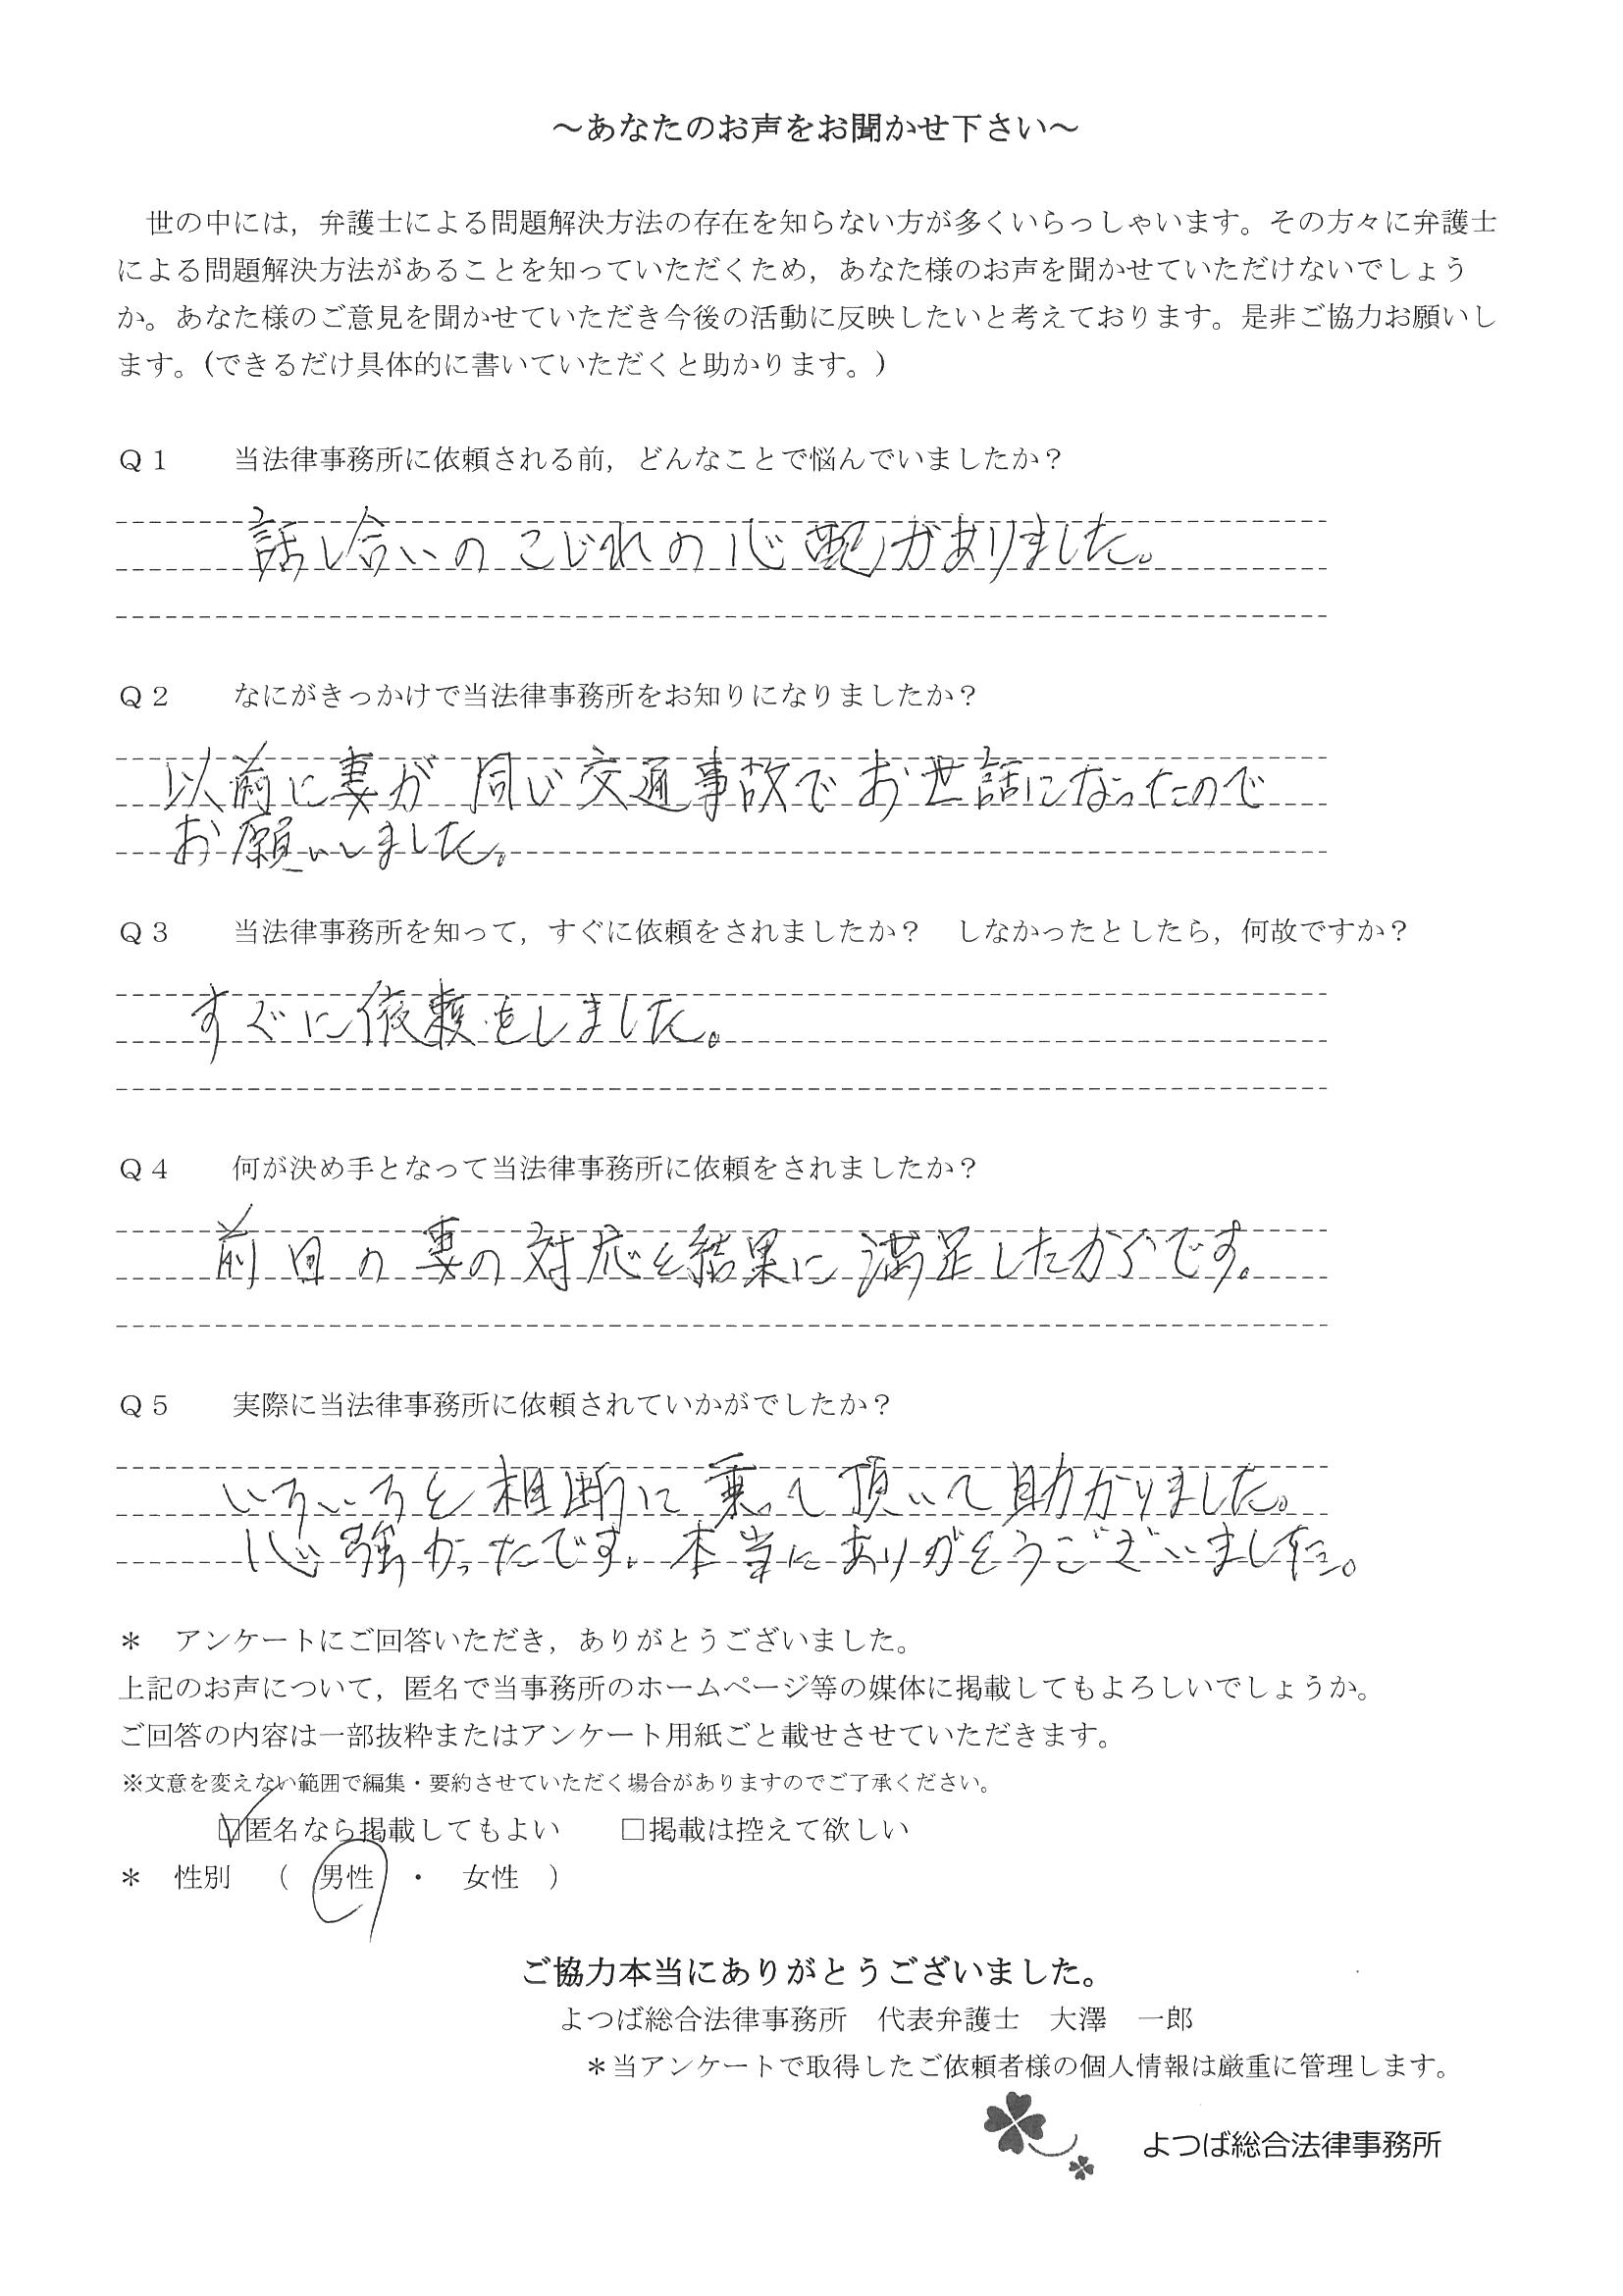 ～あなたのお声をお聞かせ下さい～
世の中には，弁護士による問題解決方法の存在を知らない方が多くいらっしゃいます。その方々に弁護士
による問題解決方法があることを知っていただくため，あなた様のお声を聞かせていただけないでしょう
か。あなた様のご意見を聞かせていただき今後の活動に反映したいと考えております。是非ご協力お願いし
ます。（できるだけ具体的に書いていただくと助かります。）
Ｑ１　　当法律事務所に依頼される前，どんなことで悩んでいましたか？
話し合いのこじれの心配がありました。
Ｑ２　　なにがきっかけで当法律事務所をお知りになりましたか？
以前に妻が同じ交通事故でお世話になったので
お願いしました。
Ｑ３　　当法律事務所を知って，すぐに依頼をされましたか？　しなかったとしたら，何故ですか？
すぐに依頼をしました。
Ｑ４　　何が決め手となって当法律事務所に依頼をされましたか？
前回の妻の対応と結果に満足したからです。
Ｑ５　　実際に当法律事務所に依頼されていかがでしたか？
いろいろと相断に乗って頂いて助かりました。
心強かったです。本当にありがとうございました。
＊　アンケートにご回答いただき，ありがとうございました。
上記のお声について，匿名で当事務所のホームページ等の媒体に掲載してもよろしいでしょうか。
ご回答の内容は一部抜粋またはアンケート用紙ごと載せさせていただきます。
※文意を変えない範囲で編集・要約させていただく場合がありますのでご了承ください。
☑匿名なら掲載してもよい　　□掲載は控えて欲しい
＊　性別　（　男性　・　女性　）
ご協力本当にありがとうございました。
よつば総合法律事務所　代表弁護士　大澤　一郎
＊当アンケートで取得したご依頼者様の個人情報は厳重に管理します。
よつば総合法律事務所